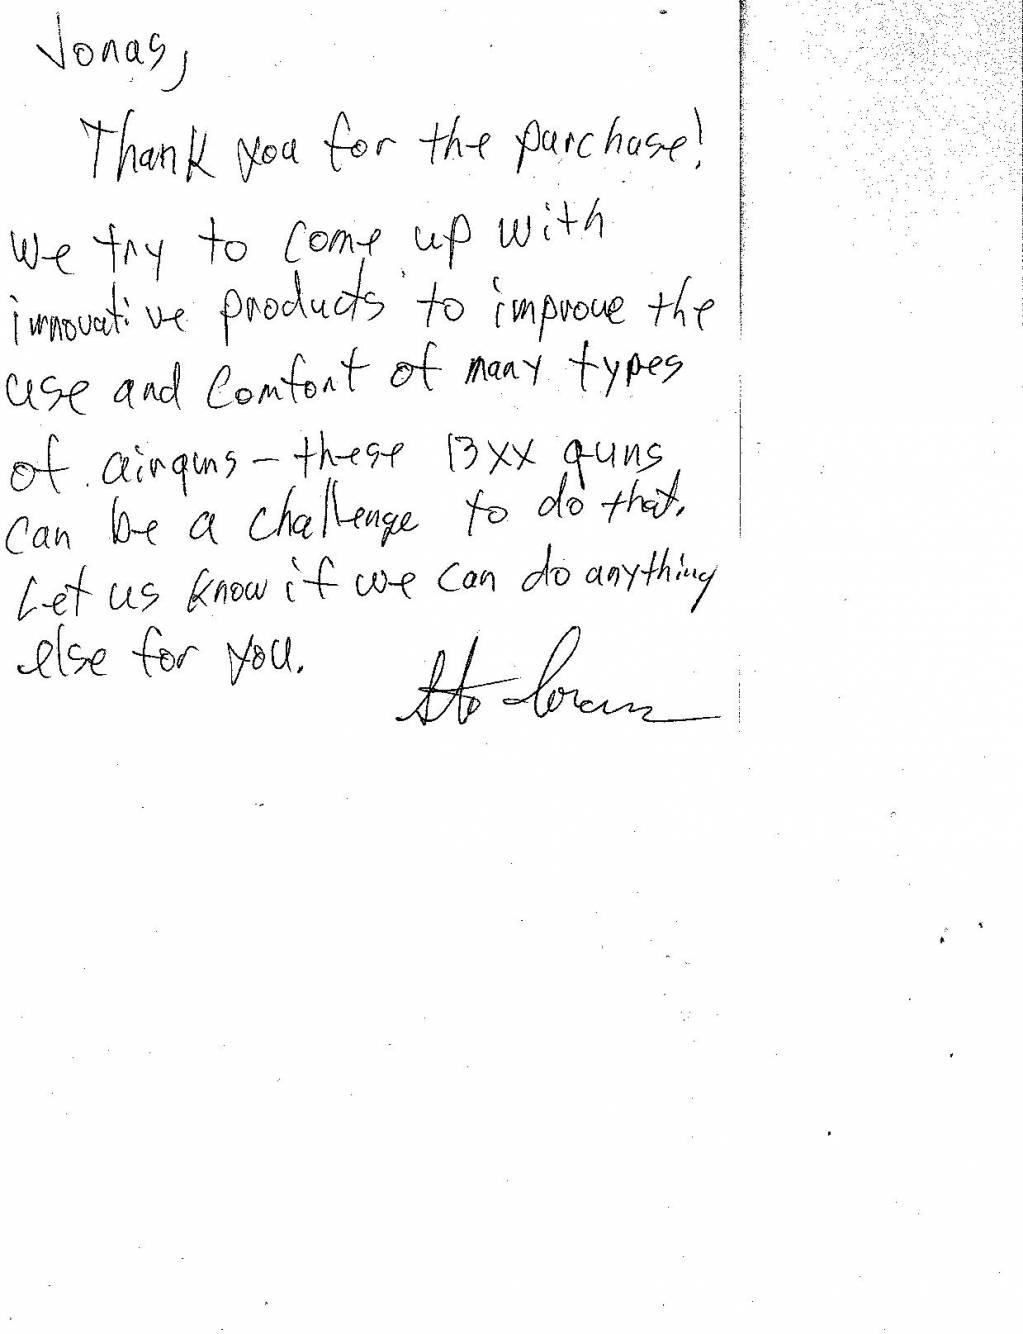 Jonas,
Thank you for the purchase!
We try to come up with
innovative products to improve the
use and comfort of many types
of airguns - these 13xx guns
can be a challenge to do that.
Let us know if we can do anything
else for you.